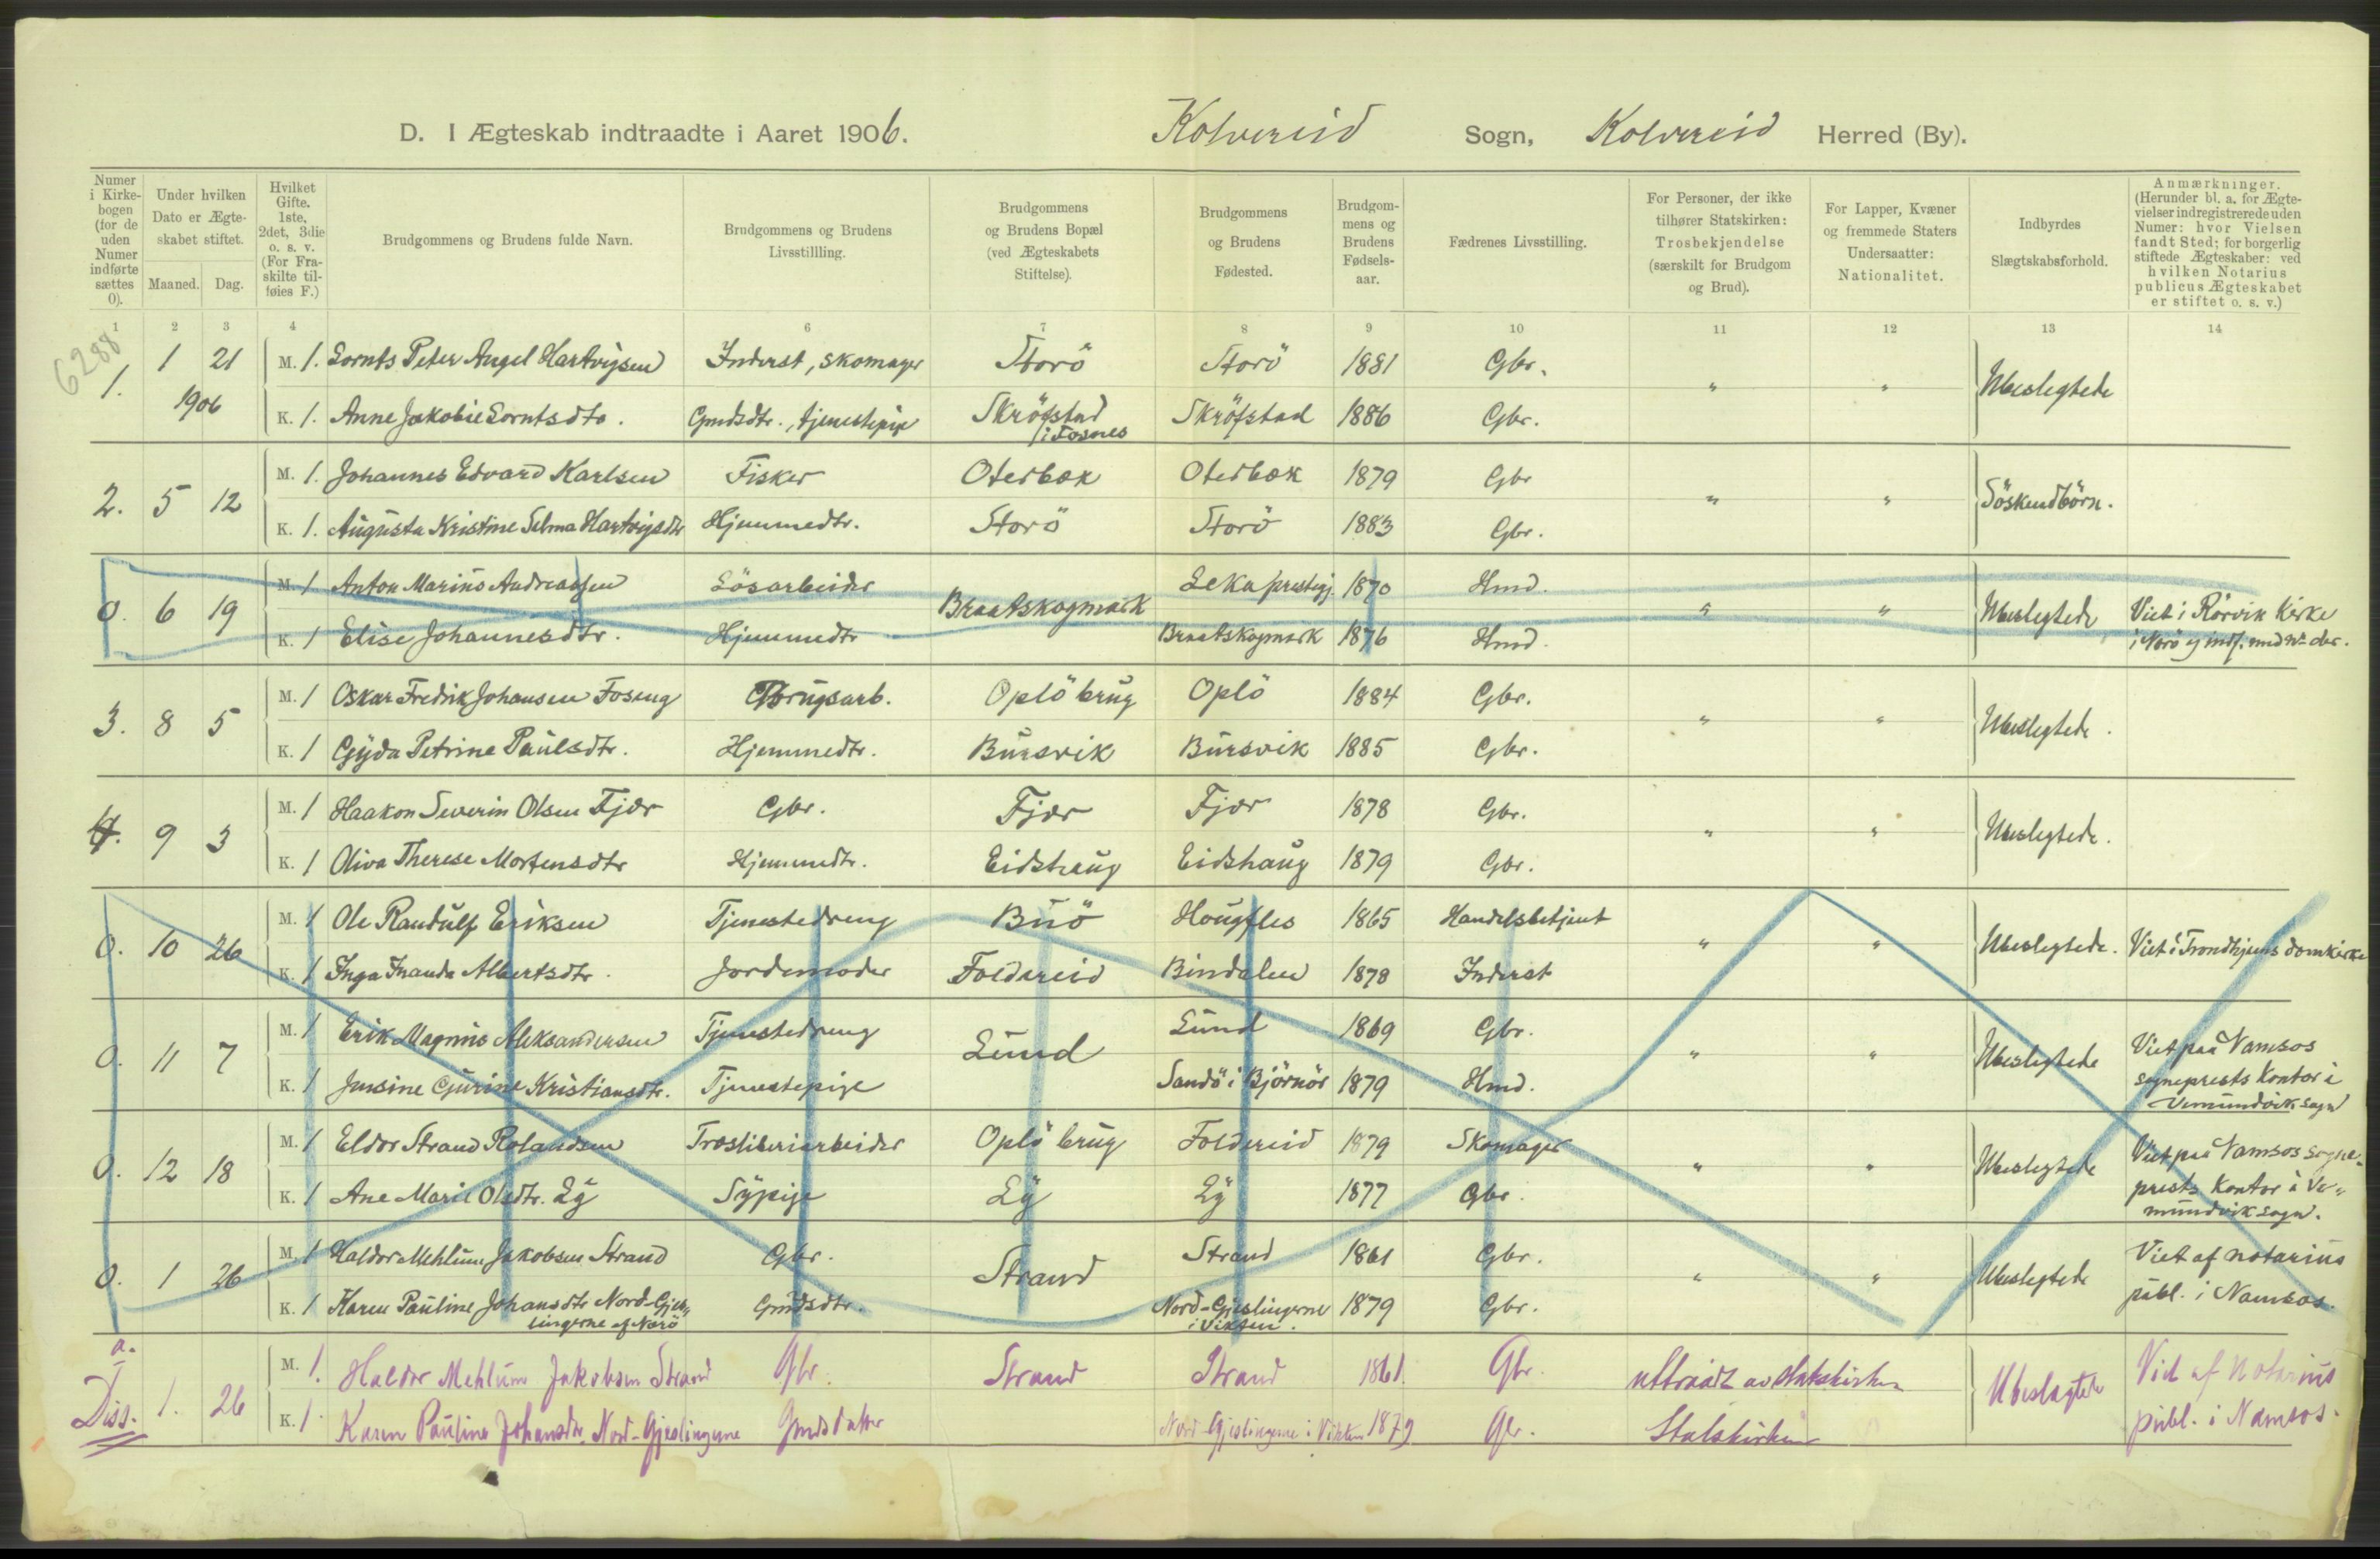 D. I Ægteskab indtraadte i Aaret 1906. Kolvereid Sogn, Kolvereid Herred (By).
Numer i Kirkebogen (for de uden Numer indførte sættes 0).
Under hvilken Dato er Ægteskabet stiftet.
Maaned. Dag.
Hvilket Gifte. 1ste, 2det, 3die o. s. v. (For Fraskilte tilføies F.)
Brudgommens og Brudens fulde Navn.
Brudgommens og Brudens Livsstillling.
Brudgommens og Brudens Bopæl (ved Ægteskabets Stiftelse).
Brudgommens og Brudens Fødested.
Brudgommens og Brudens Fødselsaar.
Fædrenes Livsstilling.
For Personer, der ikke tilhører Statskirken: Trosbekjendelse (særskilt for Brudgom og Brud).
For Lapper, Kvæner og fremmede Staters Undersaatter: Nationalitet.
Indbyrdes Slægtskabsforhold.
Anmærkninger. (Herunder bl. a. for Ægtevielser indregistrerede uden Numer: hvor Vielsen fandt Sted; for borgerlig stiftede Ægteskaber: ved hvilken Notarius publicus Ægteskabet er stiftet o. s. v.)
1 2 3 4 6 7 8 9 10 11 12 13 14
6288
1. 1 21 M. 1. Lornts Peter Angel Hartvigsen Inderst, skomager Storö Storö 1881 Gbr. " " Ubeslegtede
1906 K. 1. Anne Jakobie Lorntsdtr. Gmdsdtr., tjenestepige Skröfstad i Fosnes Skröfstad 1886 Gbr.
2. 5 12 M. 1. Johannes Edvard Karlsen Fisker Oterbæk Oterbæk 1879 Gbr " " Söskendbörn.
K. 1. Augusta Kristine Selma Hartvigsdtr Hjemmedtr. Storö Storö 1883 Gbr.
0. 6 19 M. 1 Anton Marius Andreassen Lösarbeider Braatskogmark Leka prestegj. 1870 Hmd. " " Ubeslegtede Viet i Rörvik Kirke
K. 1 Elise Johannesdtr. Hjemmedtr Braatskogmark 1876 Hmd. i Nærö ej indf. med No der.
3. 8 5 M. 1 Oskar Fredrik Johansen Foseng Brugsarb. Oplö brug Oplö 1884 Gbr. " " Ubeslegtede.
K. 1 Gyda Petrine Paulsdtr. Hjemmedtr. Bursvik Bursvik 1885 Gbr.
4. 9 3 M. 1 Haakon Severin Olsen Fjær Gbr. Fjær Fjær 1878 Gbr. " " Ubeslegtede.
K. 1 Oliva Therese Mortensdtr Hjemmedtr. Eidshaug Eidshaug 1879 Gbr.
0. 10 26 M. 1 Ole Randulf Eriksen Tjenestedreng Buö Hougfles 1865 Handelsbetjent " " Ubeslegtede. Viet i Trondhjems domkirke
K. 1 Inga Inanda Albertsdtr. Jordemoder Foldereid Bindalen 1878 Inderst
0. 11 7 M. 1 Erik Magnus Aleksandersen Tjenestedreng Lund Lund 1869 Gbr. " " Ubeslegtede Viet paa Namsos
K. 1 Jensine Gjurine Kristiansdtr. Tjenestepige Sandö i Björnör 1879 Hmd. sogneprests kontor i
Vemundvik sogn
0. 12 18 M. 1 Eldor Strand Rolandsen Træsliberiarbeider Oplö brug Foldereid 1879 Skomager " " Ubeslegtede Viet paa Namsos sogne-
K. 1 Ane Marie Olsdtr. Ly Sypige Ly Ly 1877 Gbr. prests kontor i Ve-
mundvik sogn.
0. 1 26 M. 1 Haldor Mehlum Jakobsen Strand Gbr. Strand Strand 1861 Gbr. " " Ubeslegtede Viet af notarius
K. 1 Karen Pauline Johansdtr Nord-Gjes- Gmdsdtr. Nord-Gjeslingerne 1879 Gbr. publ. i Namsos.
lingerne af Nærö i Vikten.
a.
Diss. 1. 26 M. 1. Haldor Mehlum Jakobsen Strand Gbr. Strand Strand 1861. Gbr. uttraadt av statskirken Ubeslegtede Viet af Notarius
K. 1. Karen Pauline Johansdtr. Nord-Gjeslingerne Gmdsdatter Nord-Gjeslingerne i Vikten 1879 Gbr. Statskirken publ. i Namsos.